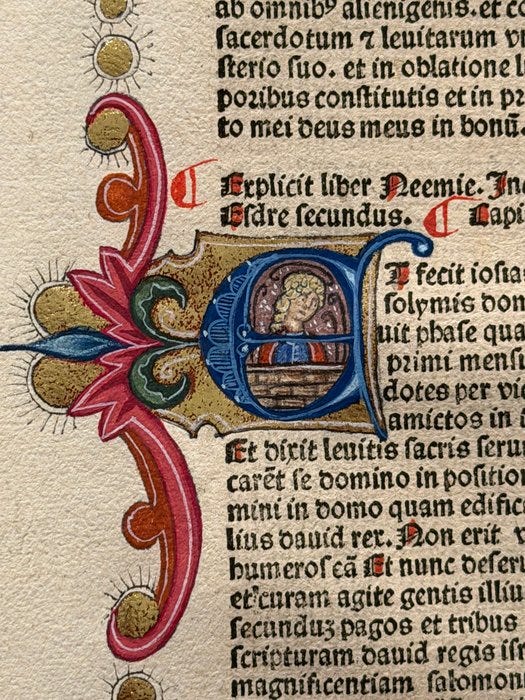 ab omnibꝰ alienigenis. et co
sacerdotum ⁊ leuitarum
sterio suo. et in oblatione
poribus constitutis et in pr
to mei deus meus in bonū
⸿ Explicit liber Neemie. In
Esdre secundus. ⸿ Capi
ET fecit iosia
solymis dom
uit phase qua
primi mensi
dotes per vi
amictos in
Et dixit leuitis sacris seru
carēt se domino in position
mini in domo quam edific
lius dauid rex. Non erit
humeros eā Et nunc deser
et curam agite gentis illiu
secunduꝫ pagos et tribus
scripturam dauid regis isr
magnificentiam salomon